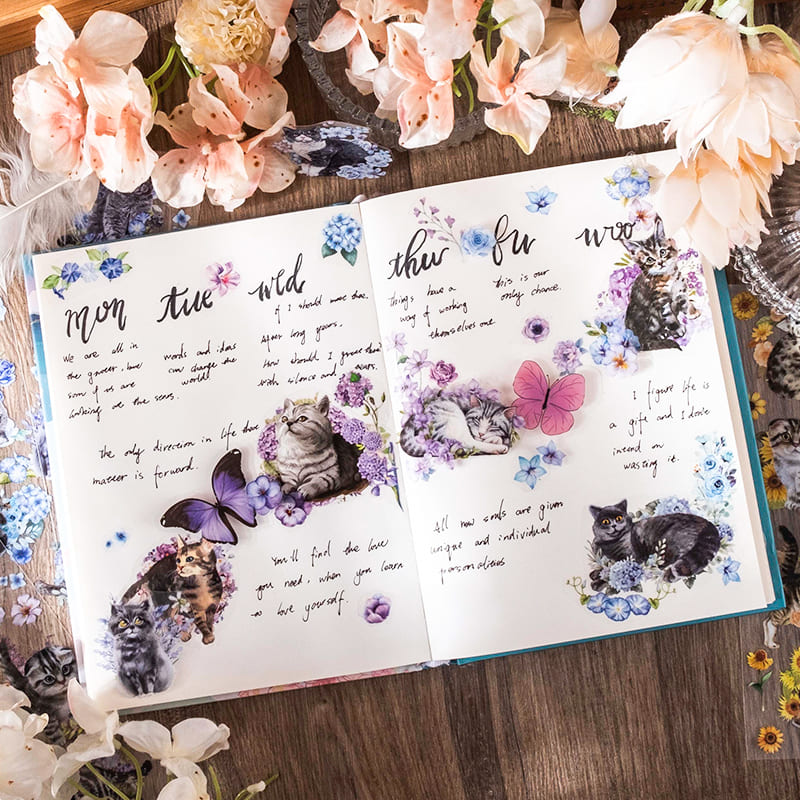 mon tue wed
We are all in
the gutter, but
som of us are
looking at the sears.
words and ideas
can change the
world!
if I should meet thee,
After long years,
How should I greet thee
with silence and tears.
The only direction in life that
matter is forward.
You'll find the love
you need, when you learn
to love yourself.
thur fri
Things have a
way of working
themselves one.
this is our
only chance.
I figure life is
a gift and I don't
intend on
wasting it.
All new souls are given
unique and individual
personalities